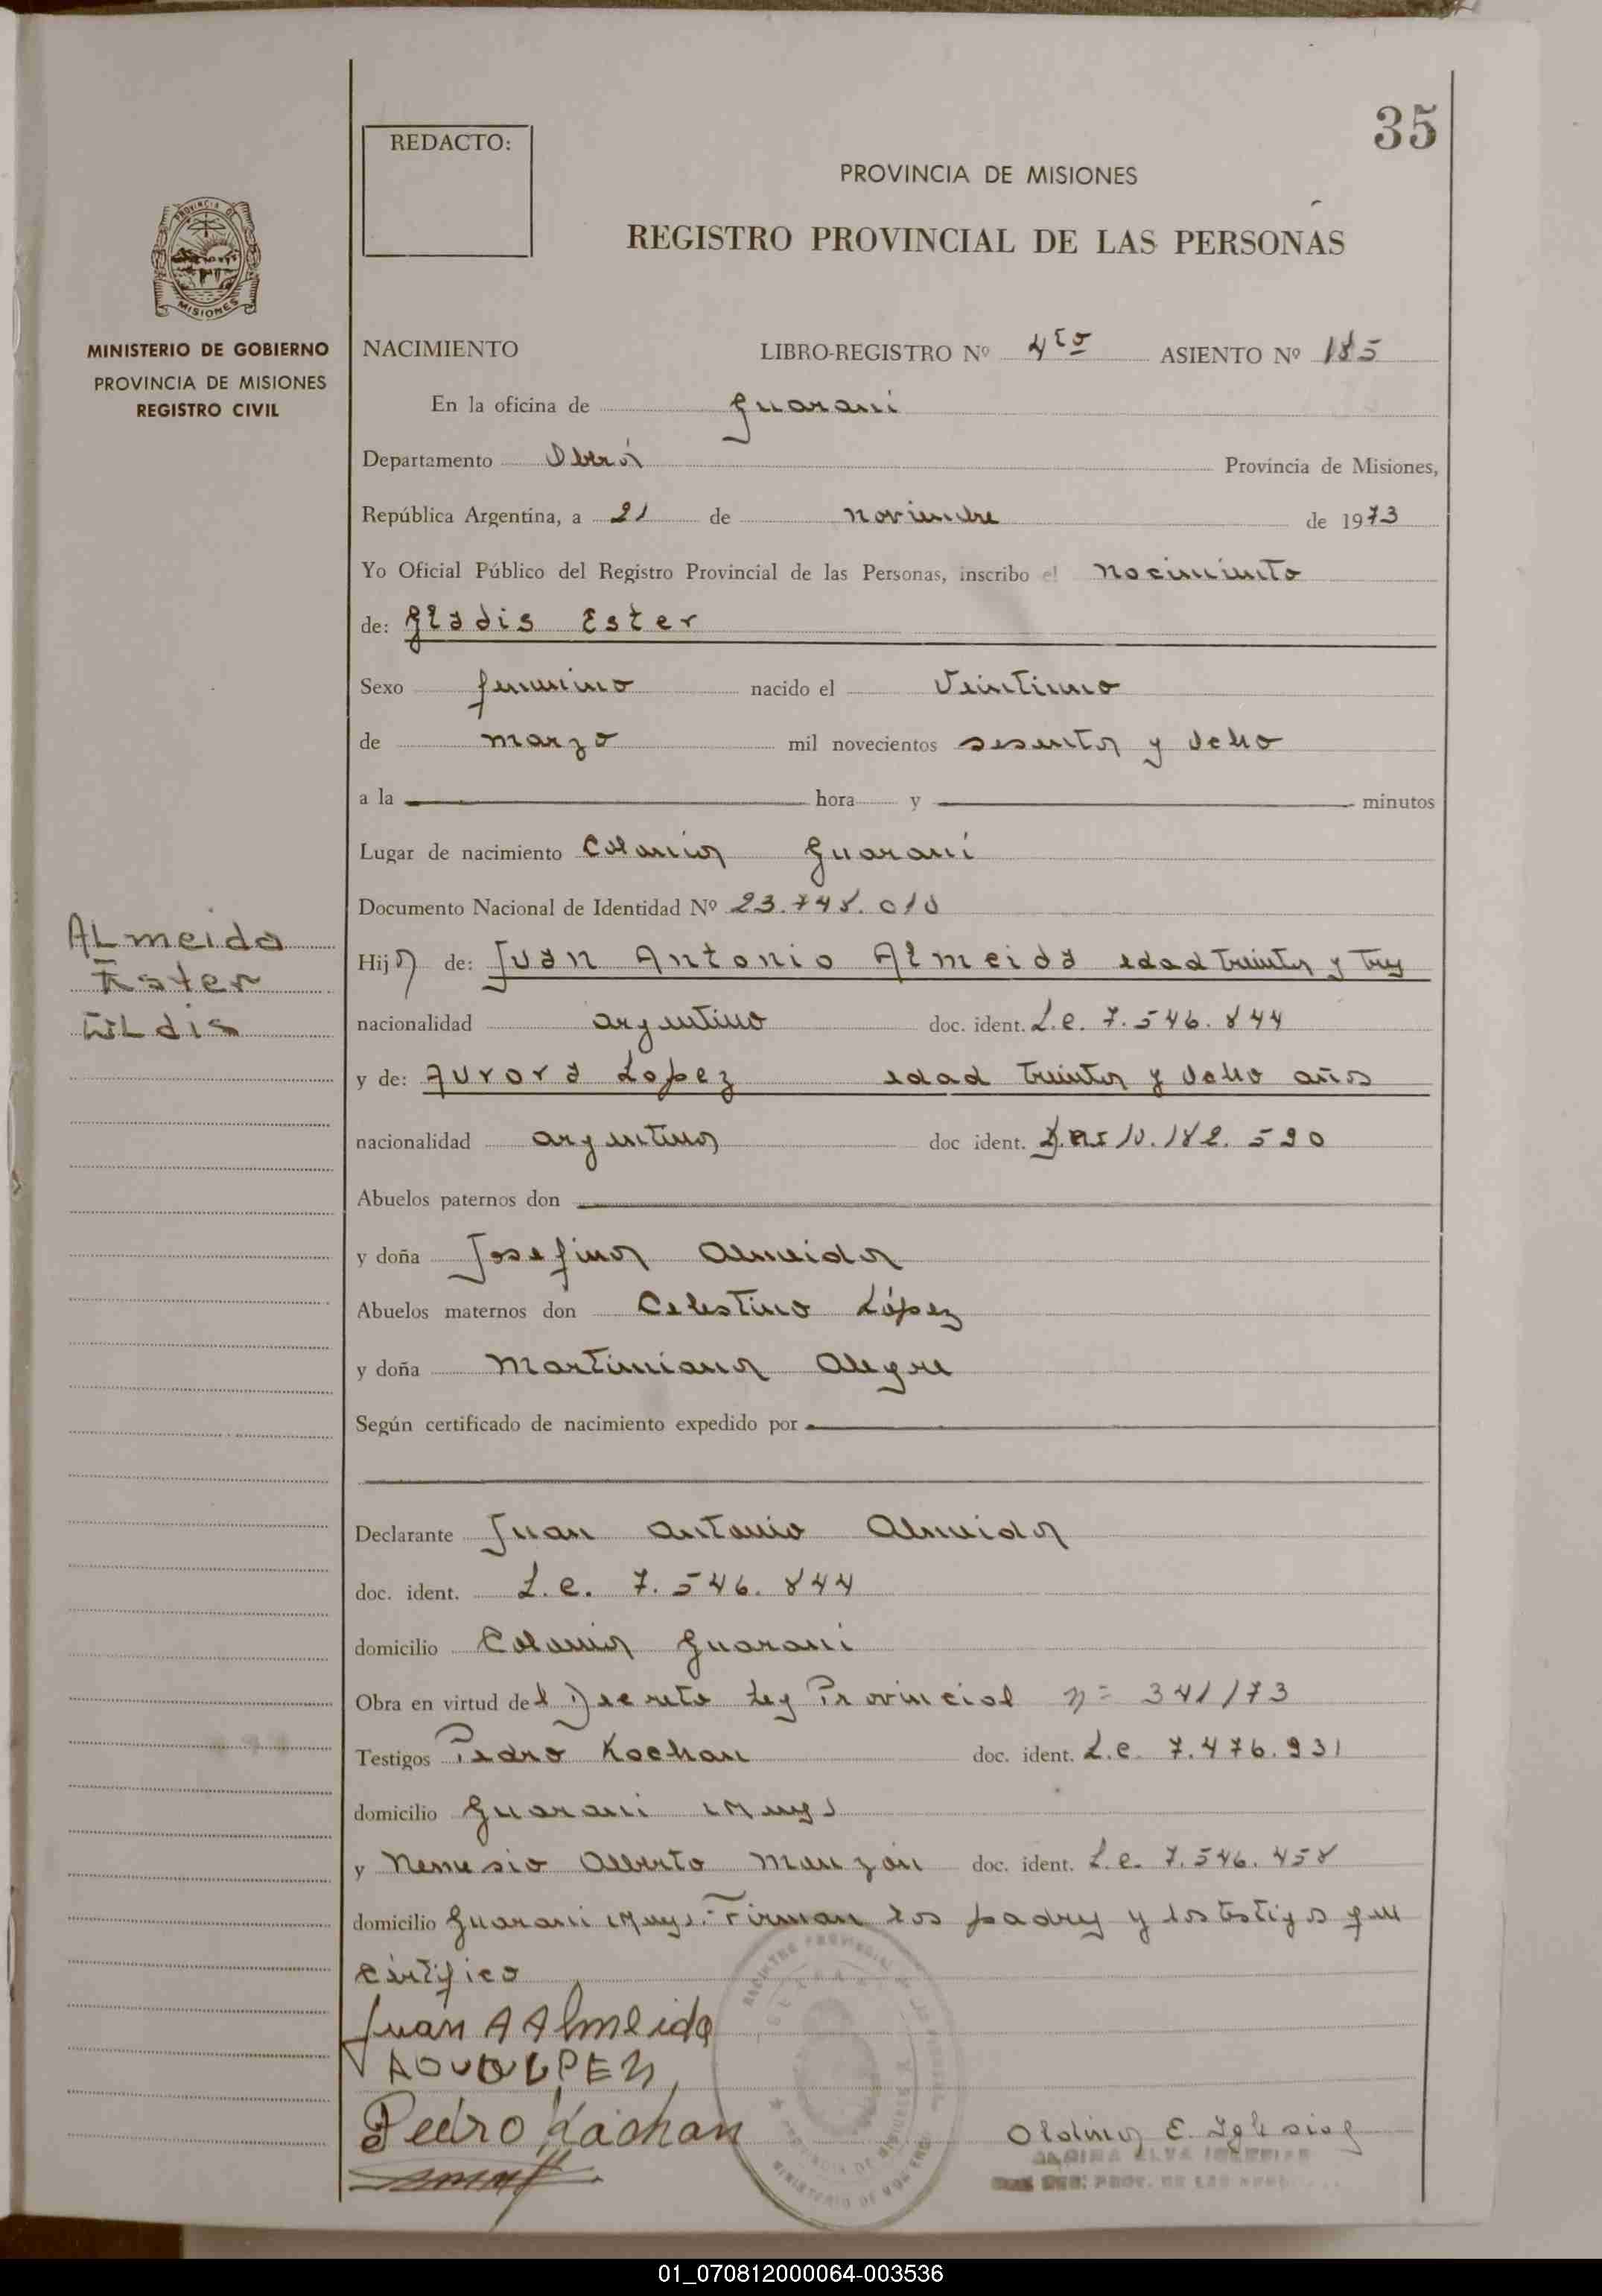 35
REDACTO:
PROVINCIA DE MISIONES
REGISTRO PROVINCIAL DE LAS PERSONAS
PROVINCIA DE
MISIONES
MINISTERIO DE GOBIERNO
PROVINCIA DE MISIONES
REGISTRO CIVIL
NACIMIENTO LIBRO-REGISTRO Nº 4to ASIENTO Nº 185
En la oficina de Guaraní
Departamento Oberá Provincia de Misiones,
República Argentina, a 21 de noviembre de 1973
Yo Oficial Público del Registro Provincial de las Personas, inscribo el nacimiento
de: Gladis Ester
Sexo femenino nacido el Veintiuno
de marzo mil novecientos sesenta y ocho
a la hora y minutos
Lugar de nacimiento Colonia Guaraní
Documento Nacional de Identidad Nº 23.748.010
ALmeida
Ester
Hija de: Juan Antonio Almeida edad treinta y tres
nacionalidad argentino doc. ident. L.e. 7.546.844
y de: Aurora Lopez edad treinta y ocho años
nacionalidad argentina doc ident. 10.182.520
Abuelos paternos don
y doña Josefina Almeida
Abuelos maternos don Celestino López
y doña Martiniana Alegre
Según certificado de nacimiento expedido por
Declarante Juan Antonio Almeida
doc. ident. L.e. 7.546.844
domicilio Colonia Guaraní
Obra en virtud del Decreto Ley Provincial n= 341/73
Testigos Pedro Kachan doc. ident. L.e. 7.476.931
domicilio Guaraní
y Nemesio Alberto Manzón doc. ident. L.e. 7.546.458
domicilio Guaraní Firman los padres y los testigos que
Certifico
Juan A Almeida
Pedro Kachan
E. Iglesias
01_070812000064-003536